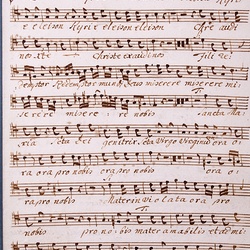 e eleison Kyrie eleison eleison Xre audi
nos xte Christe exaudi nos Fili Dei
demptor Redemptor mundi Deus miserere miserere mi
serere miserere nobis Sancta Ma
ria S cta dei genitrix cta Virgo Virginu ora o
ra ora pro nobis ora pro nobis ora o
ra pro nobis Mater inviolata ora pro
nobis pro nobis mater amabilis et de mi